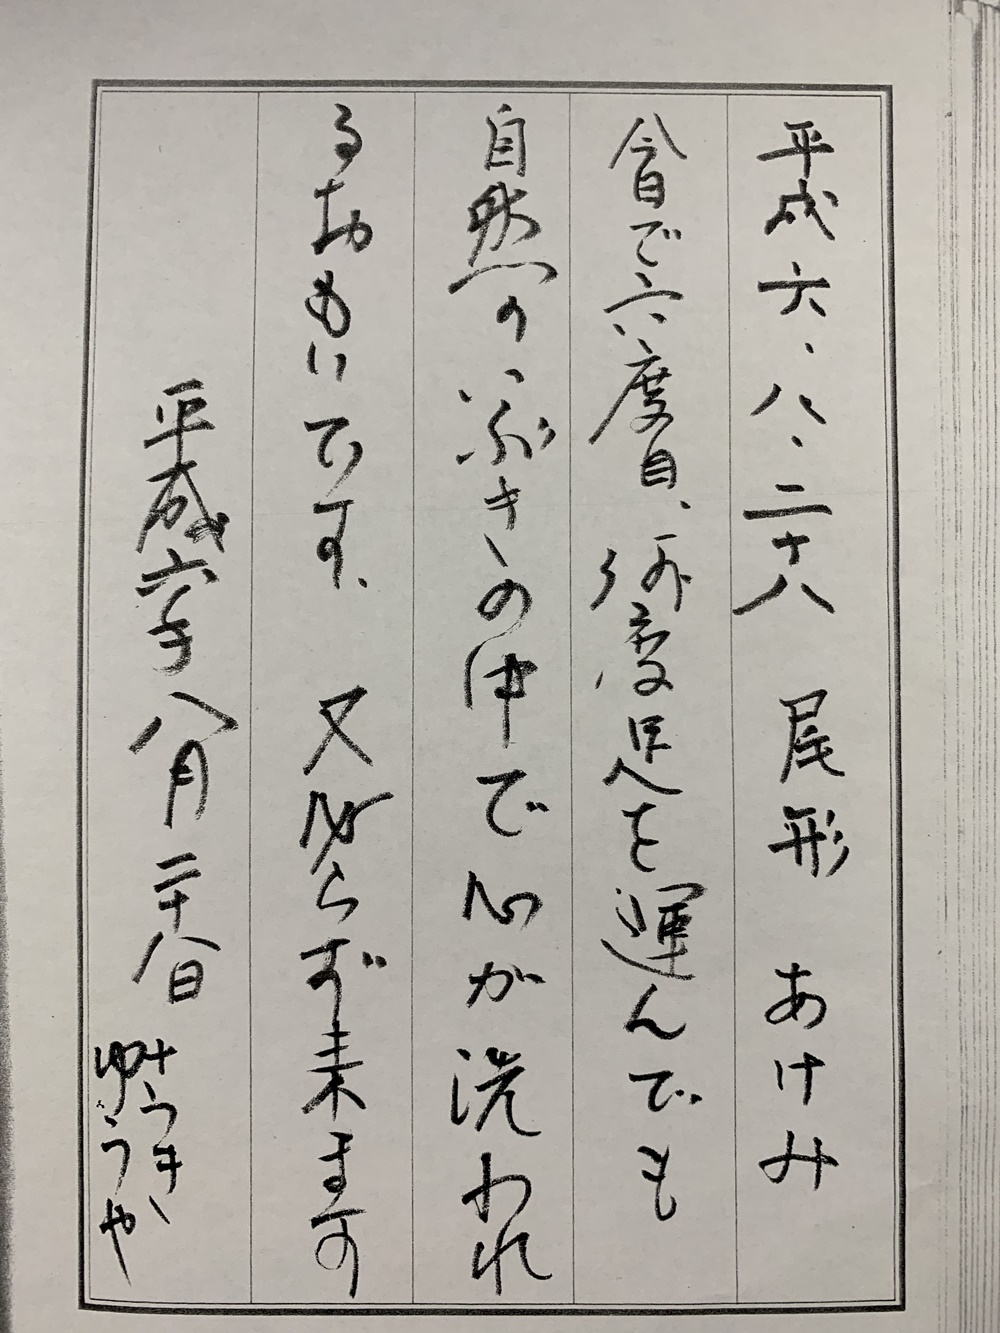 平成六、八、二十八 尾形 あけみ
今日で六度目、何度足を運んでも
自然のいぶきの中で心が洗われ
るおもいです、又必らず来ます
平成六年八月二十八日
ゆうや